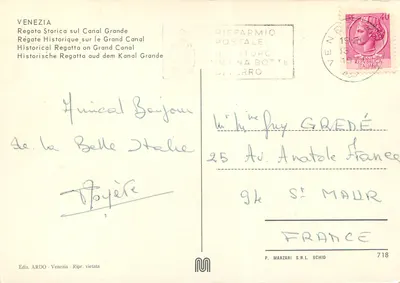 VENEZIA
Regata Storica sul Canal Grande
Régate Historique sur le Grand Canal
Historical Regatta on Grand Canal
Historische Regatta auf dem Kanal Grande
RISPARMIO
POSTALE
Amical Bonjour
de la Belle Italie
Mr Mme Guy GREDÉ
25 Av. Anatole France
94 St MAUR
FRANCE
Ediz. ARDO - Venezia Ripr. vietata
P. MARZARI S.N.L. SCHIO
718